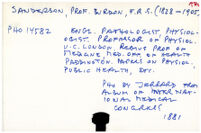 SANDERSON, PROF. BURDON, F.R.S. (1828-1905)
PHO 14582 ENGL. PATHOLOGIST PHYSIOL-
OGIST. PROFESSOR OF PHYSIOL.
U.C. LONDON
MEDICINE, MED. OFF. OF HEALTH
PADDINGTON. PAPERS ON PHYSIOL,
PUBLIC HEALTH, ETC.
PHO BY JERRARD FROM
ALBUM OF INTERNAT-
IONAL MEDICAL
CONGRESS
1881